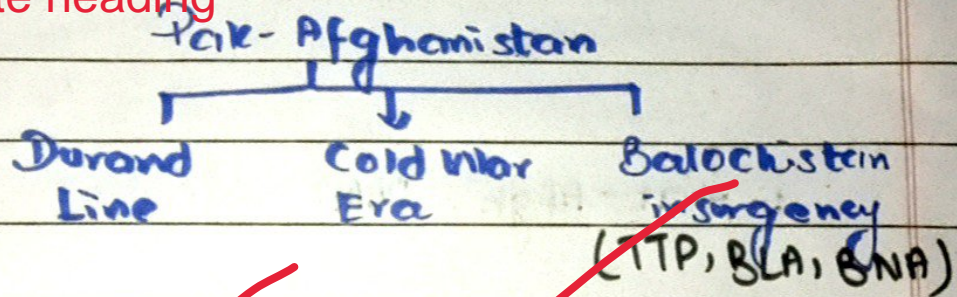 te heading
Pak-Afghanistan
Durand Line
Cold War Era
Balochistan insurgency
(TTP, BLA, BNA)